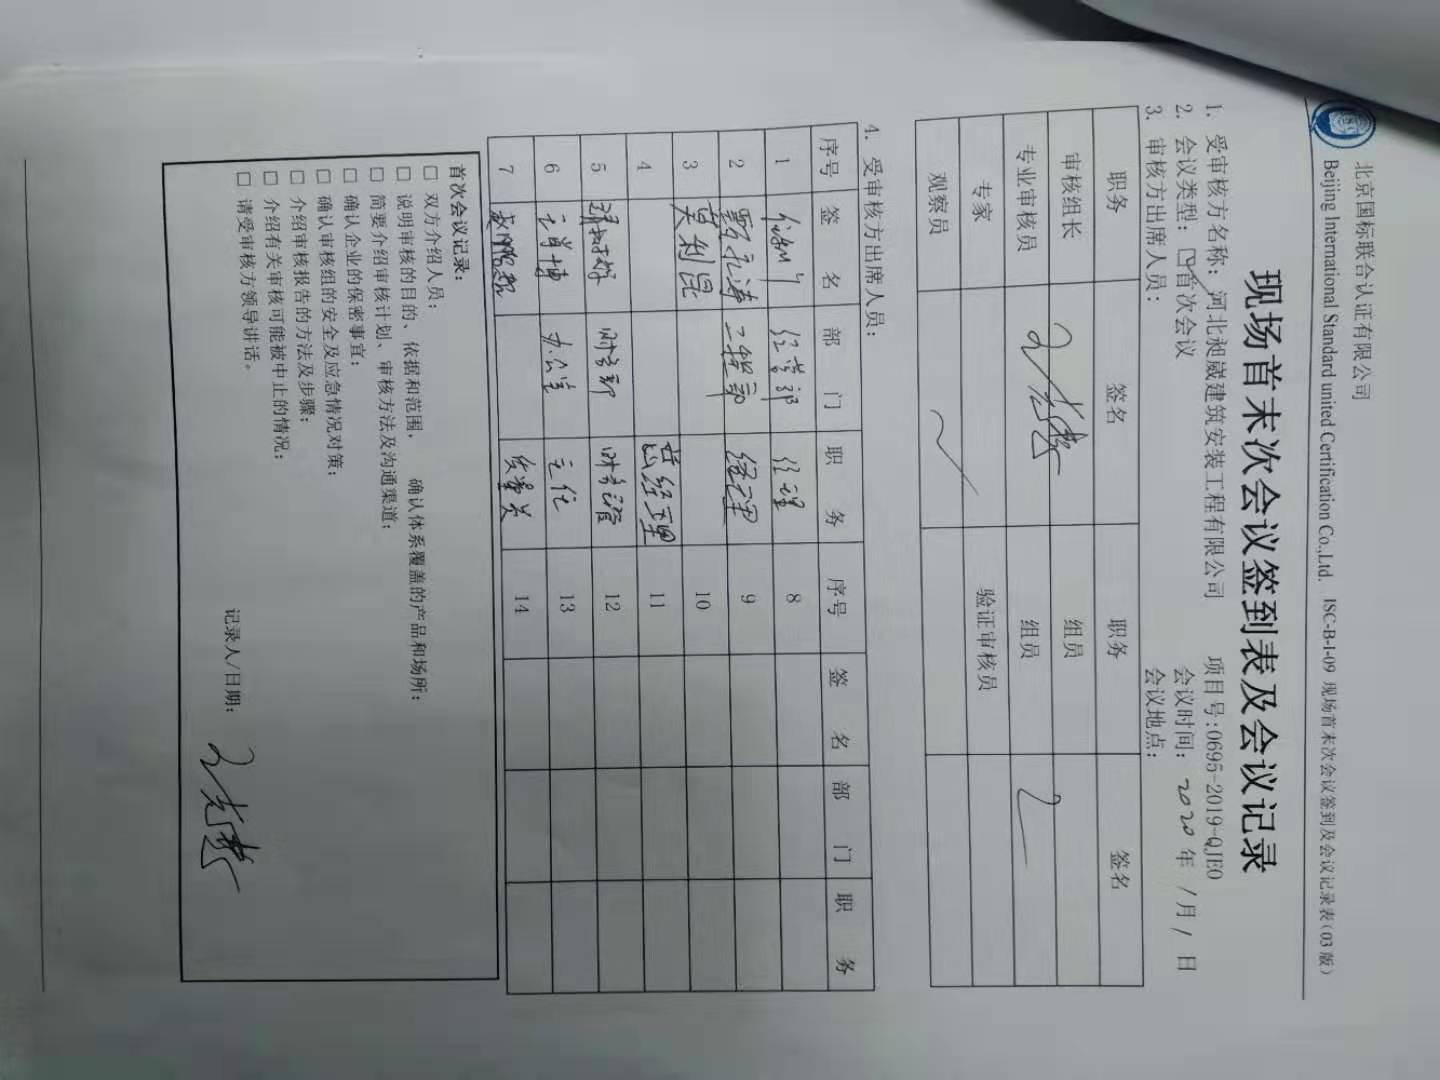 北京国标联合认证有限公司
Beijing International Standard united Certification Co.,Ltd. ISC-B-I-09 现场首末次会议签到及会议记录表(03版)
现场首末次会议签到表及会议记录
1. 受审核方名称：河北昶崴建筑安装工程有限公司 项目号:0695-2019-QJEO
2. 会议类型：☑首次会议 会议时间：2020年1月1日
3. 审核方出席人员： 会议地点：
职务 签名 职务 签名
审核组长 组员
专业审核员 组员
专家 验证审核员
观察员
4. 受审核方出席人员：
序号 签名 部门 职务 序号 签名 部门 职务
1 经营部 经理 8
2 工程部 经理 9
3 10
4 总经理 11
5 财务部 12
6 办公室 主任 13
7 14
首次会议记录：
□ 双方介绍人员；
□ 说明审核的目的、依据和范围， 确认体系覆盖的产品和场所；
□ 简要介绍审核计划、审核方法及沟通渠道；
□ 确认企业的保密事宜；
□ 确认审核组的安全及应急情况对策；
□ 介绍审核报告的方法及步骤；
□ 介绍有关审核可能被中止的情况；
□ 请受审核方领导讲话。
记录人/日期：